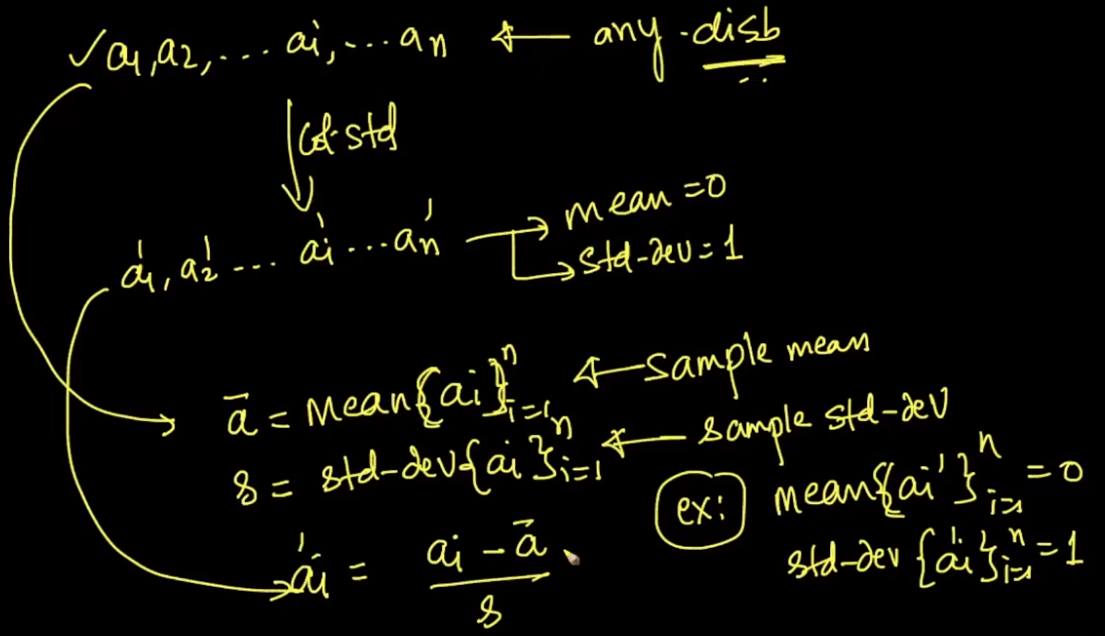 ✓ a₁, a₂, ... aᵢ, ... aₙ ← any disb
col std
a₁', a₂' ... aᵢ' ... aₙ' → mean = 0
→ std-dev = 1
ā = mean{aᵢ}ⁿᵢ₌₁ ← sample mean
s = std-dev{aᵢ}ⁿᵢ₌₁ ← sample std-dev
ex: mean{aᵢ'}ⁿᵢ₌₁ = 0
std-dev {aᵢ'}ⁿᵢ₌₁ = 1
aᵢ' = (aᵢ - ā) / s